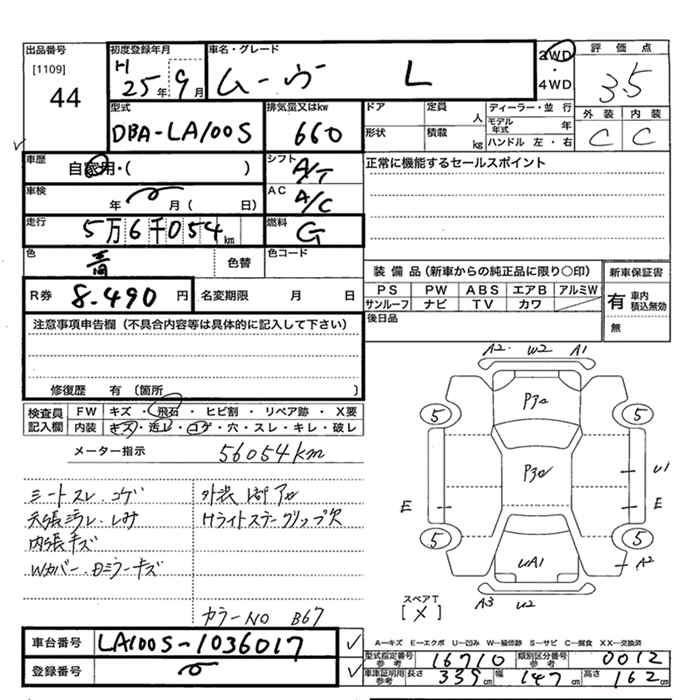 出品番号 [1109] 44
初度登録年月 H25年9月
車名・グレード ムーヴ L
2WD・4WD
評価点 3.5
外装 C 内装 C
型式 DBA-LA100S
排気量又はkw 660
ドア 定員 人
形状 積載 kg
ディーラー・並行
モデル年式 年
ハンドル 左・右
車歴 自家用・( )
シフト A/T
正常に機能するセールスポイント
車検 年 月( 日)
AC A/C
走行 5万6千054km
燃料 G
色 青 色替
色コード
R券 8.490円
名変期限 月 日
装備品(新車からの純正品に限り〇印)
PS PW ABS エアB アルミW
サンルーフ ナビ TV カワ
新車保証書
有 車内積込無効
無
後日品
注意事項申告欄(不具合内容等は具体的に記入して下さい)
修復歴 有 〔箇所 〕
検査員記入欄
FW キズ・飛石・ヒビ割・リペア跡・X要
内装 キズ・汚レ・コゲ・穴・スレ・キレ・破レ
メーター指示 56054km
シートスレ.コゲ
内張キズ
Wカバー.Dミラーキズ
カラーNO B67
A2 W2 A1
P3a
P3a
UA1
5 5 5 5
E U1 E A2
A3 U2
スペアT
[×]
A―キズ E―エクボ U―凹み W―補修跡 S―サビ C―腐食 XX―交換済
車台番号 LA100S-1036017
登録番号
型式指定番号参考 16710
類別区分番号参考 0012
車庫証明用参考 長さ 339cm 幅 147cm 高さ 162cm